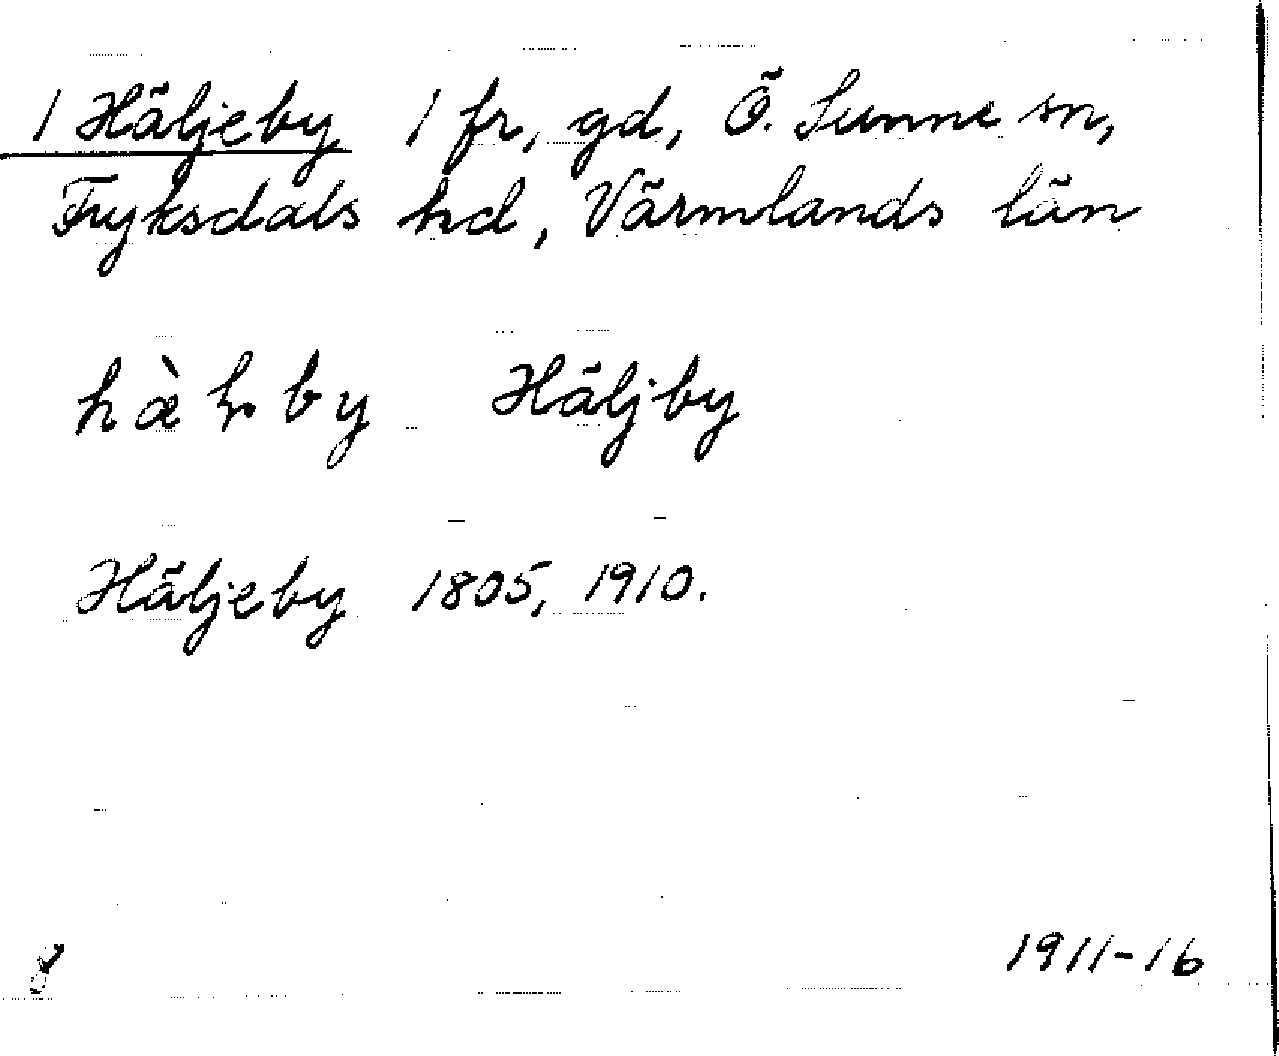 1 Häljeby 1 fr, gd, Ö. Sunne sn,
Fryksdals hd, Värmlands län
Häljby
Häljeby 1805, 1910.
1911-16